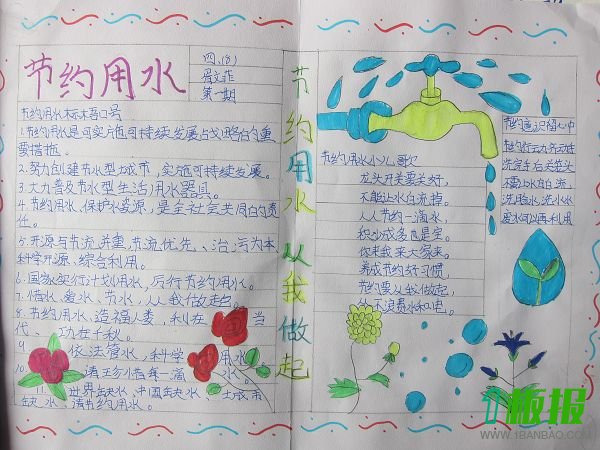 节约用水
四、(8)
第一期
节约用水标语口号
1.节约用水是可实施可持续发展战略的重
要措施。
2.努力创建节水型城市，实施可持续发展。
3.大力普及节水型生活用水器具。
4.节约用水、保护水资源，是全社会共同的责
任。
5.开源与节流并重，节流优先、治污为本
科学开源、综合利用。
6.国家实行计划用水，厉行节约用水。
7.惜水、爱水、节水，从我做起。
8.节约用水，造福人类，利在 当
代、功在千秋。
9 依法管水，科学 用水
10 请珍惜每一滴 水。
世界缺水、中国缺水、城市
缺水、请节约用水。
节约用水从我做起
节约用水小儿歌
龙头开关要关好，
不能让水白流掉。
人人节约一滴水，
积少成多也是宝。
你来我来大家来。
养成节约好习惯，
节约要从我做起，
处处不浪费水和电。
节约意识留心中
洗完手后关龙头
不能让水白白流
洗脸水、洗小水
板报
WWW.1BANBAO.COM